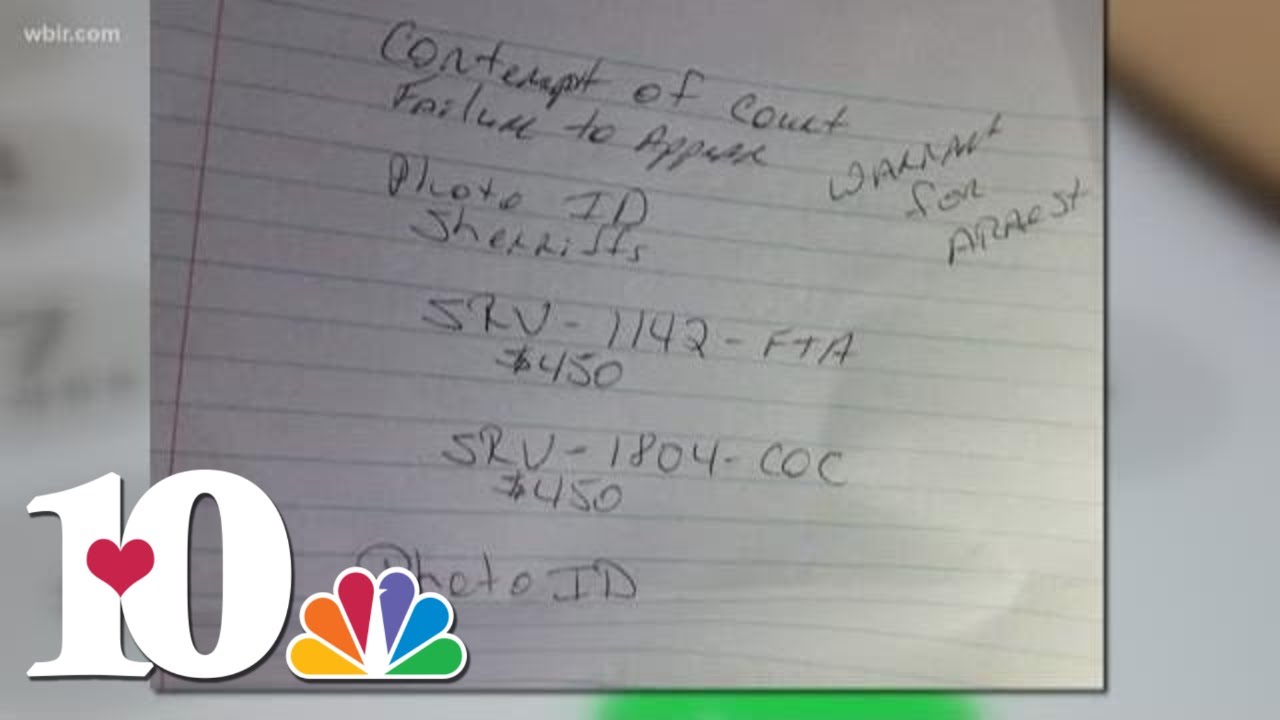 wbir.com
Contempt of Court
Failure to Appear
Warrant
for
Arrest
Photo ID
Sherriffs
SRV-1142-FTA
$450
SRV-1804-COC
$450
Photo ID
10